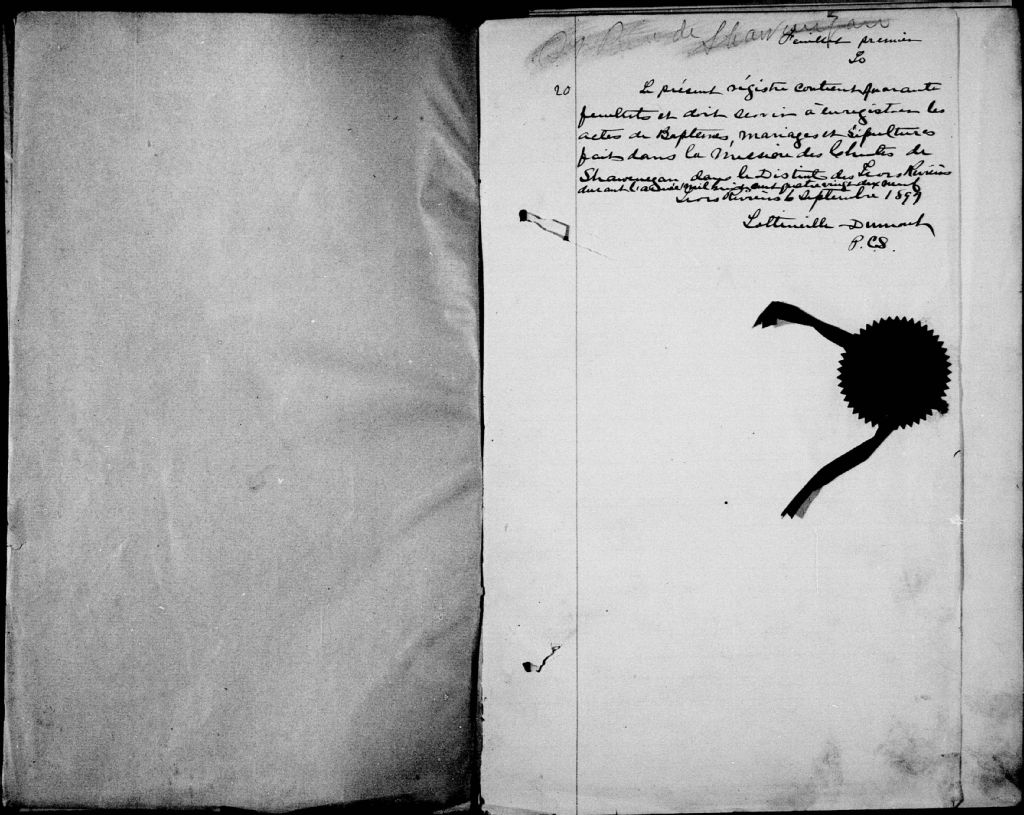 de Shawinigan
Feuillet premier
20
Le présent régistre contient quarante
feuillets et doit servir à enregistrer les
actes de Baptêmes, mariages et Sépultures
faits dans la Mission des Chutes de
Shawenegan dans le District des Trois Rivières
durant l'année mil huit cent quatre vingt dix neuf
Trois Rivières 6 Septembre 1899
Lottinville Dumont
P.C.S.